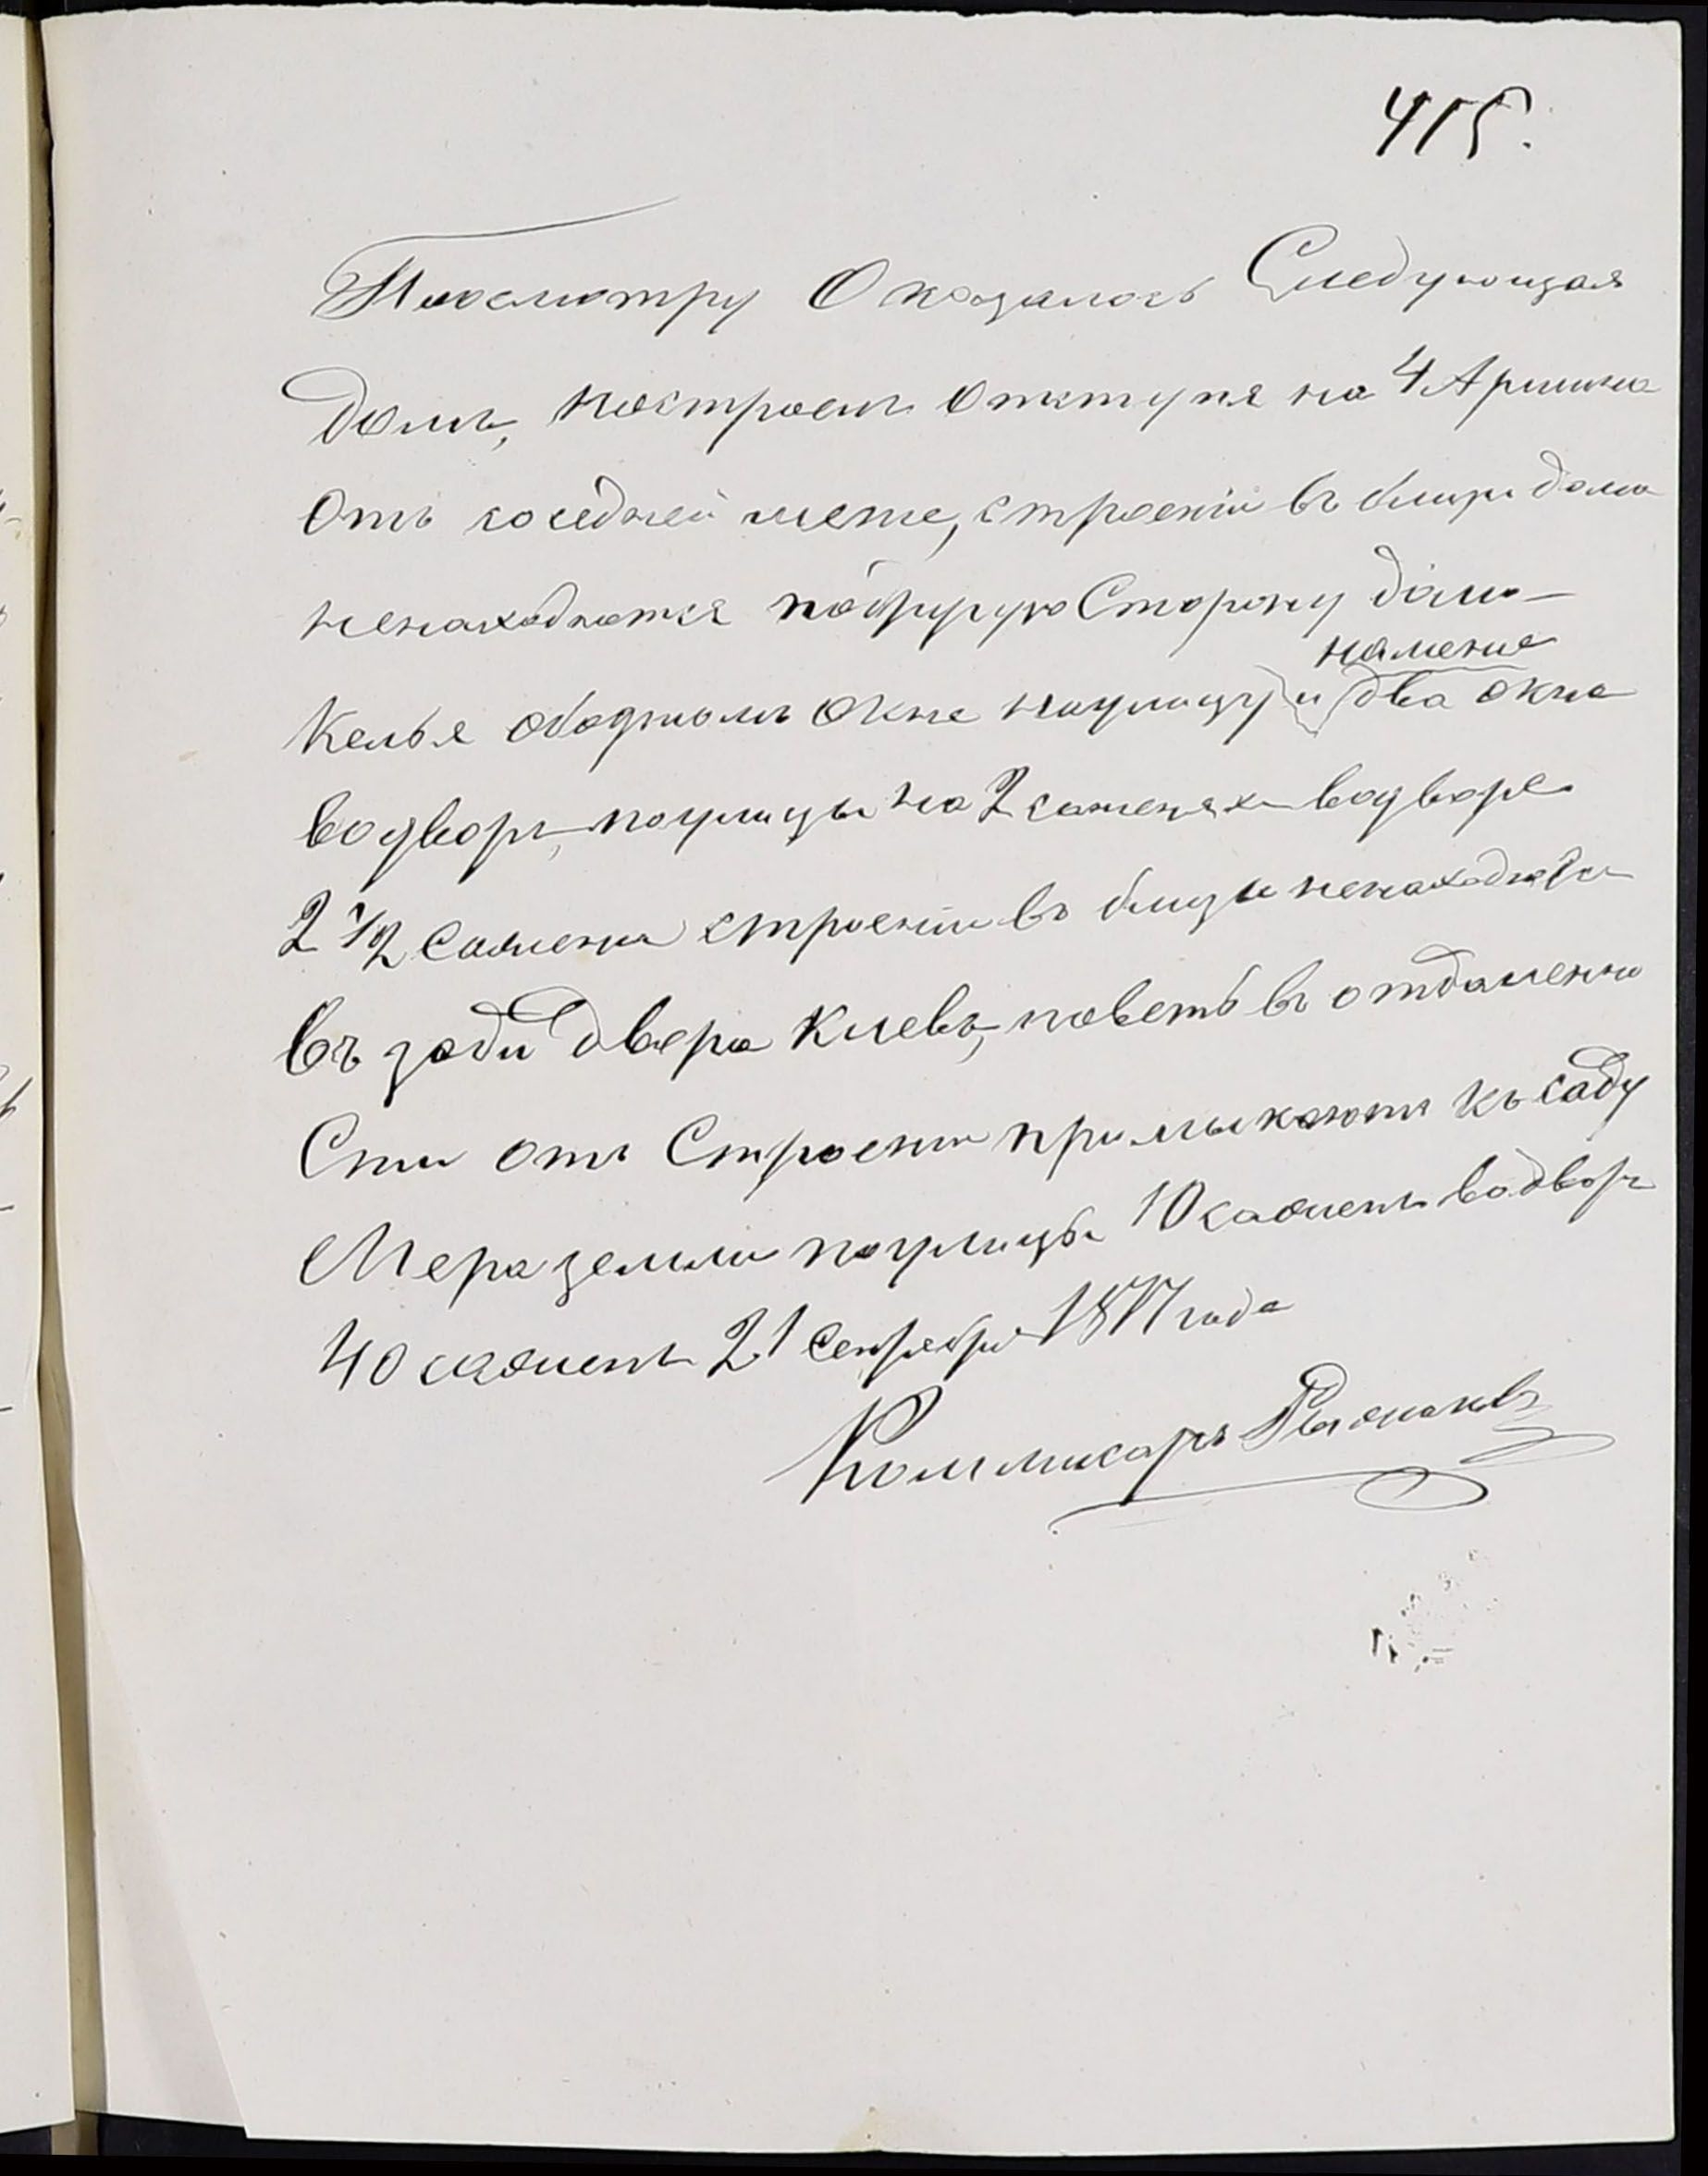 415.
Поосмотру Оказалось Следующая
домъ, построенъ отступя на 4 Аршина
Отъ соседней меже, строении въ близи дома
ненаходиются подругую Сторону дома
намение
Келья ободномъ окне наулицу и два окна
водворъ, поулицы на 2 саженяхъ водворе
2 1/2 сажени строении въ близи ненаходются
въ зади двора Хлевъ, поветь въ отдаленно
Сти отъ Строении примыкаютъ къ саду
Мера земли поулицы 10 сажень водворъ
40 сажень 21 Сентября 1877 года
Коммисаръ Рыжаковъ